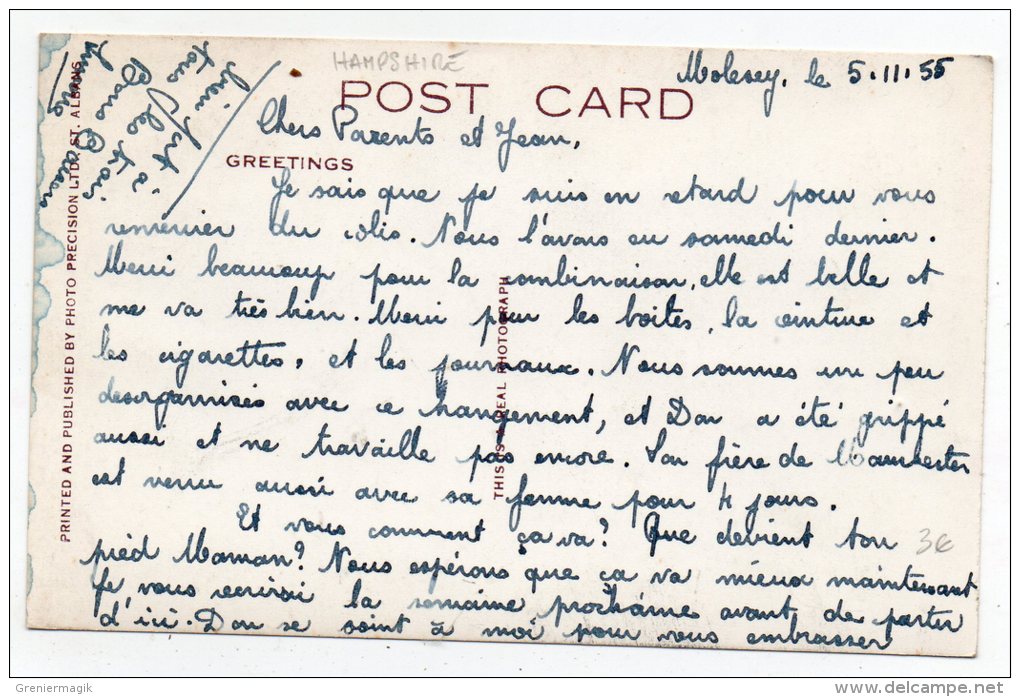 HAMPSHIRE
POST CARD
GREETINGS
Molesey, le 5.11.55
Chers Parents et Jean,
Je sais que je suis en retard pour vous
remercier du colis. Nous l'avons eu samedi dernier.
Merci beaucoup pour la combinaison, elle est belle et
me va très bien. Merci pour les boites, la ceinture et
les cigarettes, et les journaux. Nous sommes un peu
desorganisés avec ce changement, et Don a été grippé
aussi et ne travaille pas encore. Son frère de Manchester
est venu aussi avec sa femme pour 4 jours.
Et vous comment ça va? Que devient ton
pied Maman? Nous espérons que ça va mieux maintenant
Je vous écrirai la semaine prochaine avant de partir
d'ici. Don se joint à moi pour vous embrasser
bien fort à
tous les trois
Bons Baisers
PRINTED AND PUBLISHED BY PHOTO PRECISION LTD., ST. ALBANS
THIS IS A REAL PHOTOGRAPH
3€
Greniermagik
www.delcampe.net